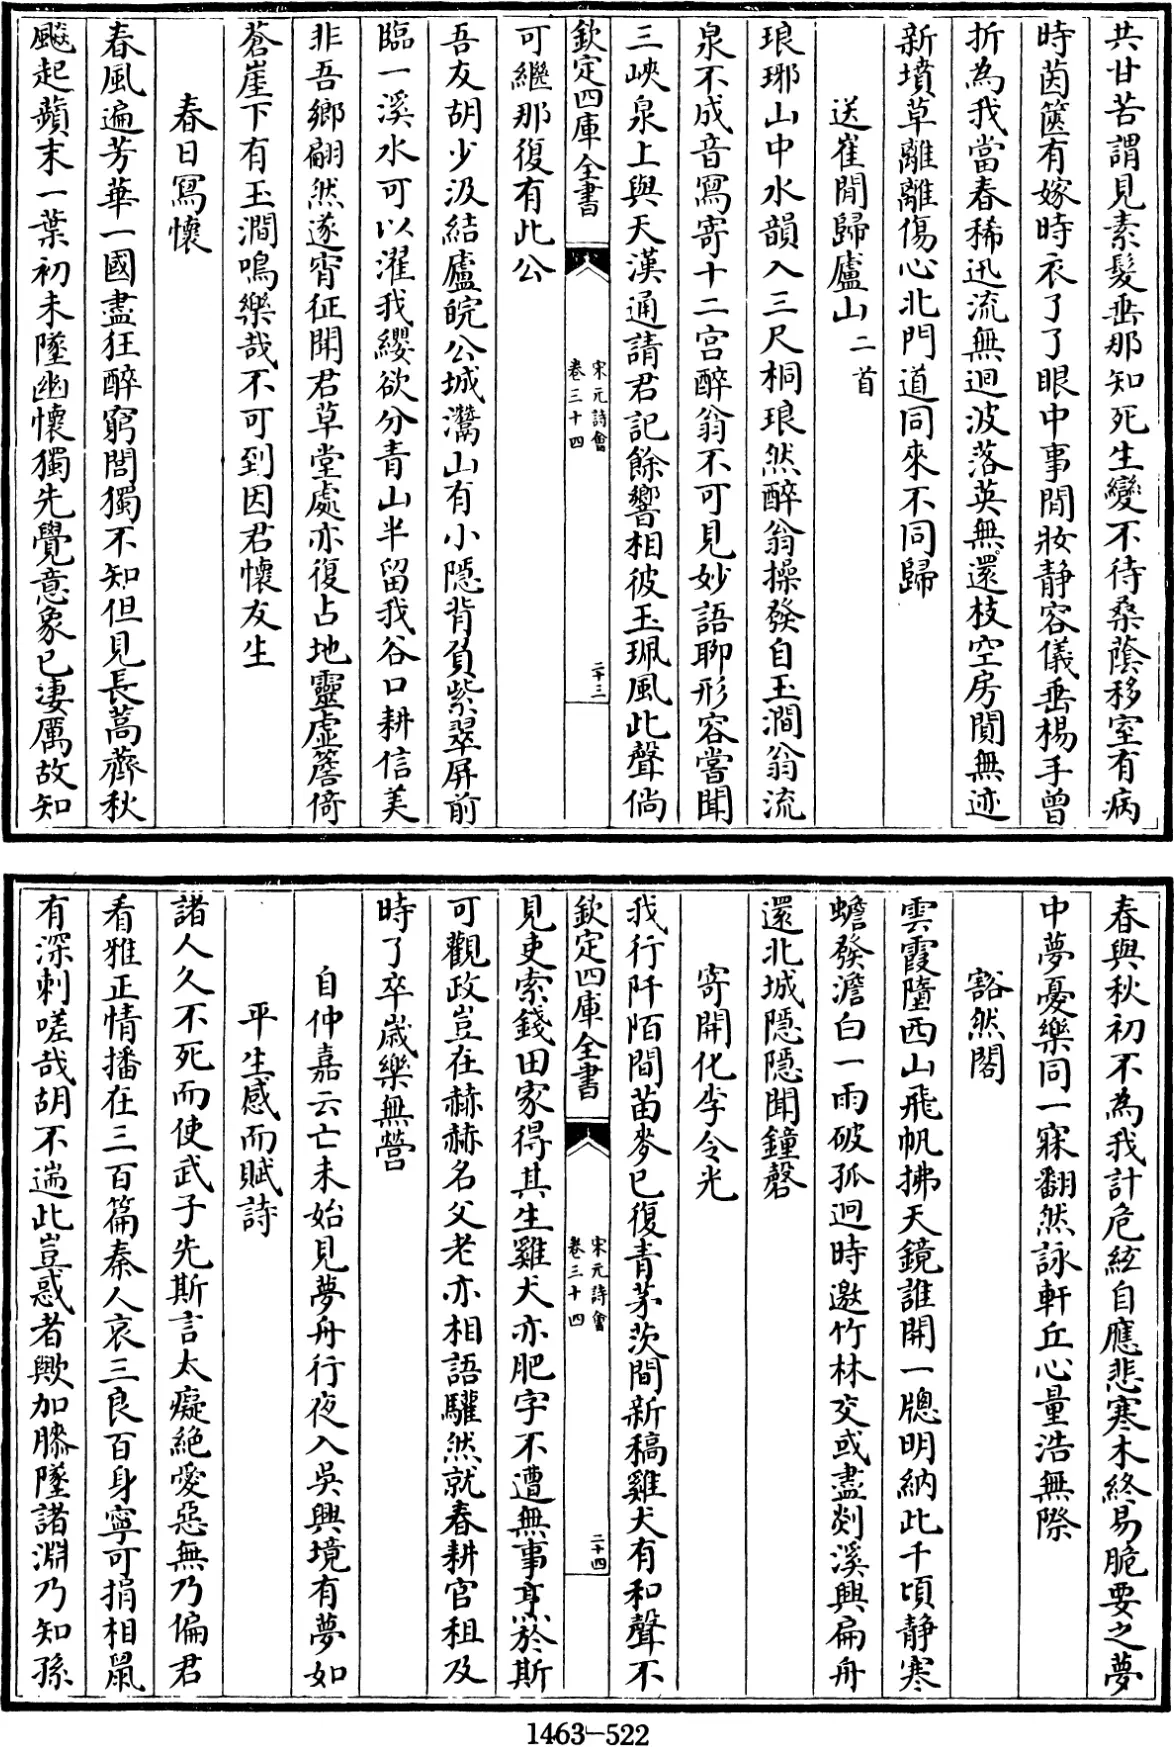 共甘苦謂見素髮垂那知死生變不待桑蔭移室有病
時茵篋有嫁時衣了了眼中事閒妝静容儀垂楊手曾
折為我當春稀迅流無迴波落英無還枝空房閴無迹
新墳草離離傷心北門道同來不同歸
送崔閒歸廬山二首
琅琊山中水韻入三尺桐琅然醉翁操發自玉澗翁流
泉不成音寫寄十二宫醉翁不可見妙語聊形容嘗聞
三峽泉上與天漢通請君記餘響相彼玉珮風此聲倘
欽定四庫全書
宋元詩會
卷三十四
二十三
可繼那復有此公
吾友胡少汲結廬皖公城灊山有小隠背負紫翠屏前
臨一溪水可以濯我纓欲分青山半留我谷口耕信美
非吾鄉翩然遂宵征聞君草堂處亦復占地靈虛簷倚
蒼崖下有玉澗鳴樂哉不可到因君懷友生
春日冩懷
春風遍芳華一國盡狂醉窮閻獨不知但見長蒿薺秋
飈起蘋末一葉初未墜幽懷獨先覺意象已凄厲故知
春與秋初不為我計危絃自應悲寒木終易脆要之夢
中夢憂樂同一寐翻然詠軒丘心量浩無際
豁然閣
雲霞墮西山飛帆拂天鏡誰開一牕明納此千頃静寒
蟾發澹白一雨破孤迥時邀竹林交或盡剡溪興扁舟
還北城隠隠聞鐘磬
寄開化李令光
我行阡陌間苗麥已復青茅茨間新稿雞犬有和聲不
欽定四庫全書
宋元詩會
卷三十四
二十四
見吏索錢田家得其生雞犬亦肥字不遭無事亨於斯
可觀政豈在赫赫名父老亦相語驩然就春耕官租及
時了卒歲樂無營
自仲嘉云亡未始見夢舟行夜入吳興境有夢如
平生感而賦詩
諸人久不死而使武子先斯言太癡絶愛惡無乃偏君
看雅正情播在三百篇秦人哀三良百身寧可捐相鼠
有深刺嗟哉胡不遄此豈惑者歟加膝墜諸淵乃知孫
1463—522